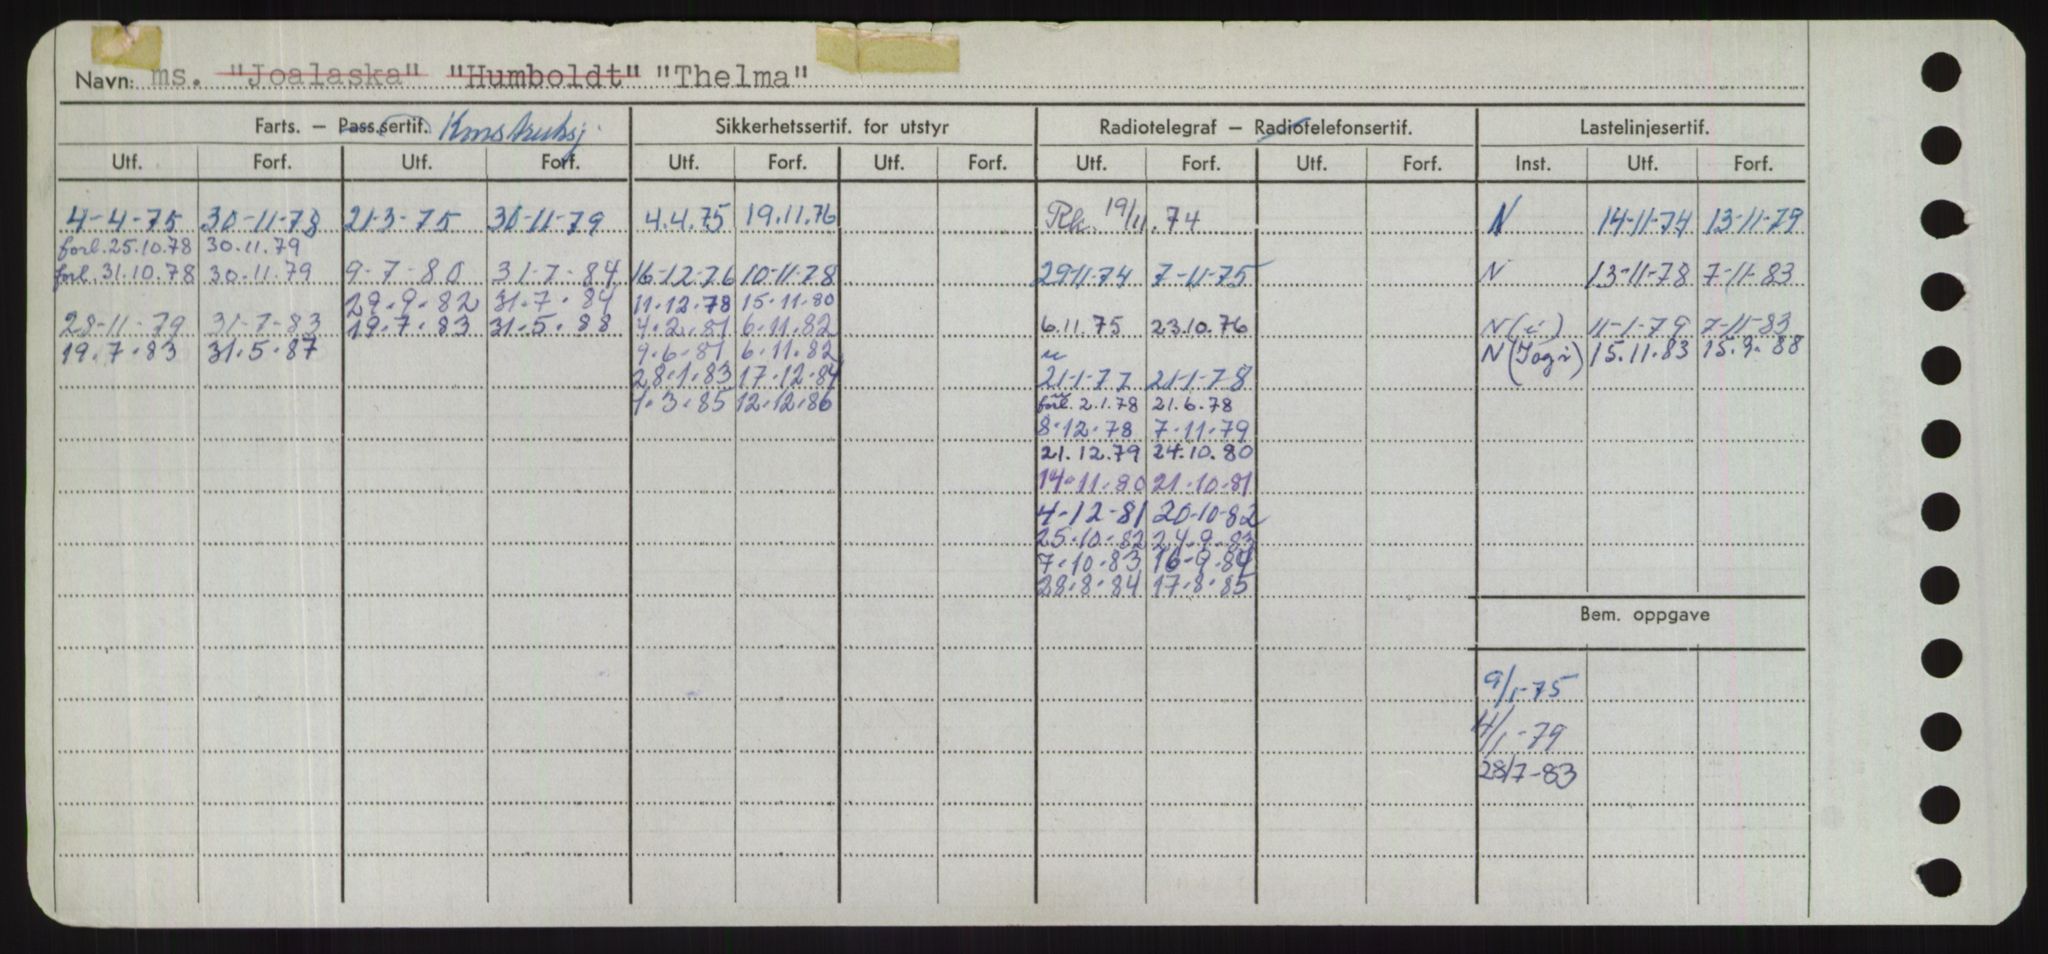 Navn: ms. "Joalaska" "Humboldt" "Thelma"
Farts. – Pass.sertif. Konstruksj. Sikkerhetssertif. for utstyr Radiotelegraf – Radiotelefonsertif. Lastelinjesertif.
Utf. Forf. Utf. Forf. Utf. Forf. Utf. Forf. Utf. Forf. Utf. Forf. Inst. Utf. Forf.
4-4-75 30-11-78 21-3-75 30-11-79 4.4.75 19.11.76 Rk. 19/11.74 N 14-11-74 13-11-79
forl. 25.10.78 30.11.79
forl. 31.10.78 30.11.79 9-7-80 31-7-84 16-12-76 10-11-78 29-11-74 7-11-75 N 13-11-78 7-11-83
29.9.82 31.7.84 11.12.78 15.11.80
28-11-79 31-7-83 19.7.83 31.5.88 4.2.81 6.11.82 6.11.75 23.10.76 N(i) 11-1-79 7-11-83
19.7.83 31.5.87 9.6.81 6.11.82 N(Iogi) 15.11.83 15.9.88
28.1.83 17.12.84 21-1-77 21-1-78
1.3.85 12.12.86 forl. 2.1.78 21.6.78
8.12.78 7.11.79
21.12.79 24.10.80
14.11.80 21.10.81
4-12-81 20-10-82
25.10.82 24.9.83
7.10.83 16-9-84
28.8.84 17.8.85
Bem. oppgave
9/1-75
4/1-79
28/7-83